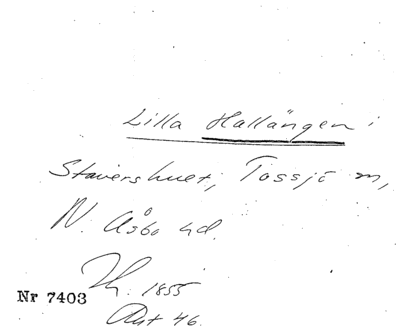 Lilla Hallängen i
Stavershuet, Tossjö m,
N. Åsbo hd.
Th. 1855
Nr 7403
Akt 46.